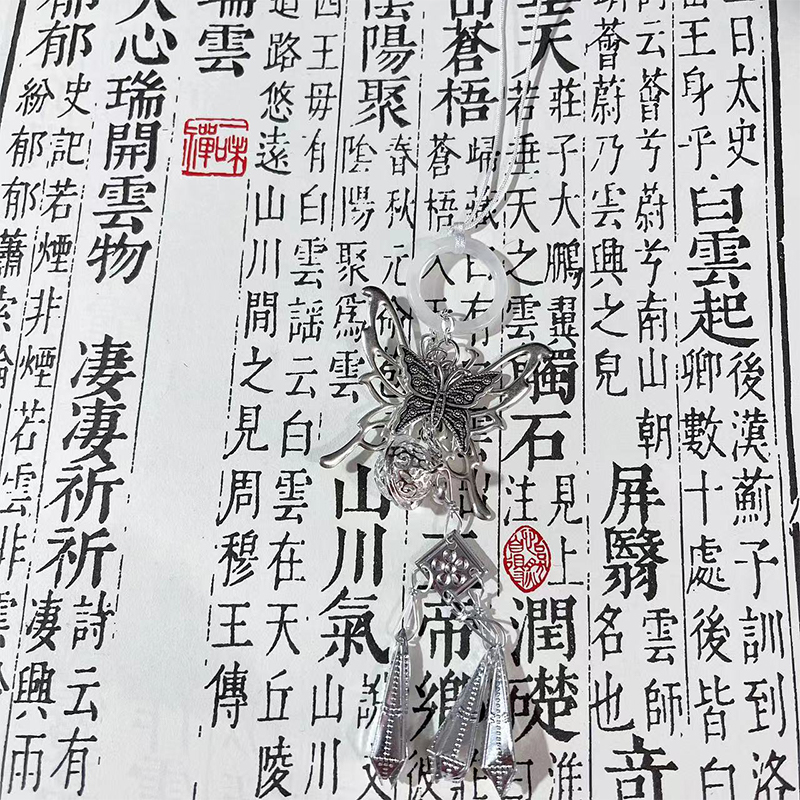 日太史
王身乎
白雲起
後漢薊子訓到洛
卿數十處後皆白
云薈兮蔚兮南山朝
薈蔚乃雲興之皃
屏翳
雲師
名也
奇
垂天
莊子大鵬翼
若垂天之雲
觸石
見上
注
潤礎
淮
曰
蒼梧
歸藏曰有
蒼梧入
帝鄉
陰陽聚
春秋元命
陰陽聚爲雲
山川氣
說文
山川
西王母有白雲謠云白雲在天丘陵
道路悠遠山川間之見周穆王傳
瑞雲
一味禪
人心瑞開雲物
凄凄祈祈
詩云有
凄興雨
郁郁
史記若煙非煙若雲非
紛郁郁蕭索輪